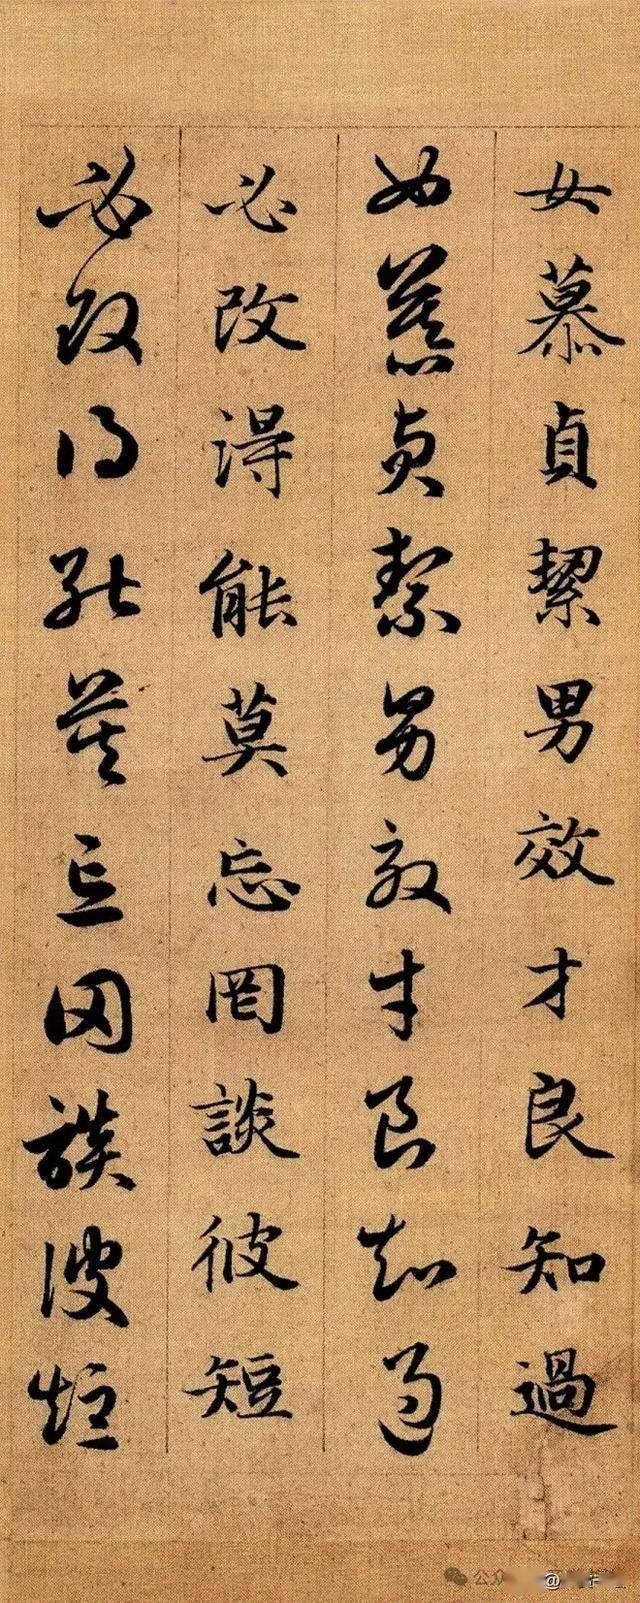 女慕貞絜男效才良知過
女慕貞絜男效才良知過
必改得能莫忘罔談彼短
必改得能莫忘罔談彼短
公众